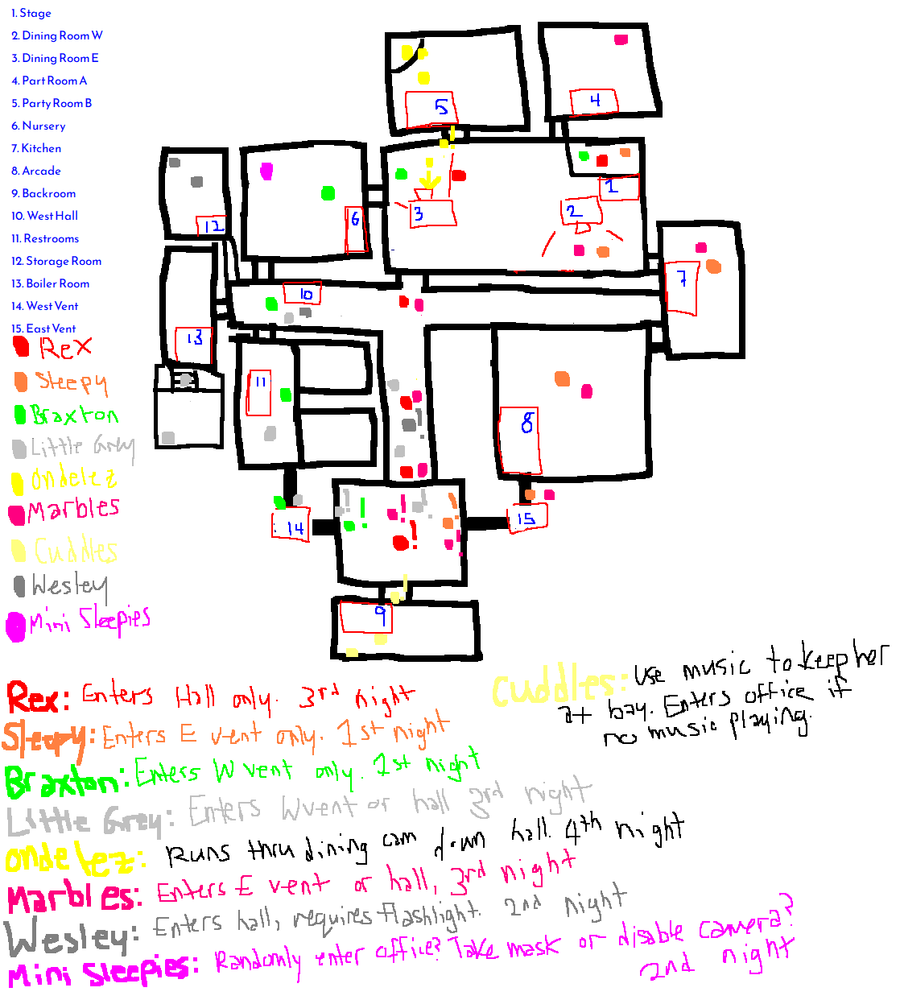 1. Stage
2. Dining Room W
3. Dining Room E
4. Part Room A
5. Party Room B
6. Nursery
7. Kitchen
8. Arcade
9. Backroom
10. West Hall
11. Restrooms
12. Storage Room
13. Boiler Room
14. West Vent
15. East Vent
Rex
Sleepy
Braxton
Little Grey
Ondelez
Marbles
Cuddles
Wesley
Mini Sleepies
5
4
12
6
3
2
1
7
10
13
11
8
14
15
9
! ! ! !
Rex: Enters Hall only. 3rd night
Sleepy: Enters E vent only. 1st night
Braxton: Enters W vent only. 1st night
Little Grey: Enters W vent or hall 3rd night
Ondelez: Runs thru dining cam down hall. 4th night
Marbles: Enters E vent or hall, 3rd night
Wesley: Enters hall, requires flashlight. 2nd night
Mini Sleepies: Randomly enter office? Take mask or disable camera?
2nd night
Cuddles: Use music to keep her
at bay. Enters office if
no music playing.